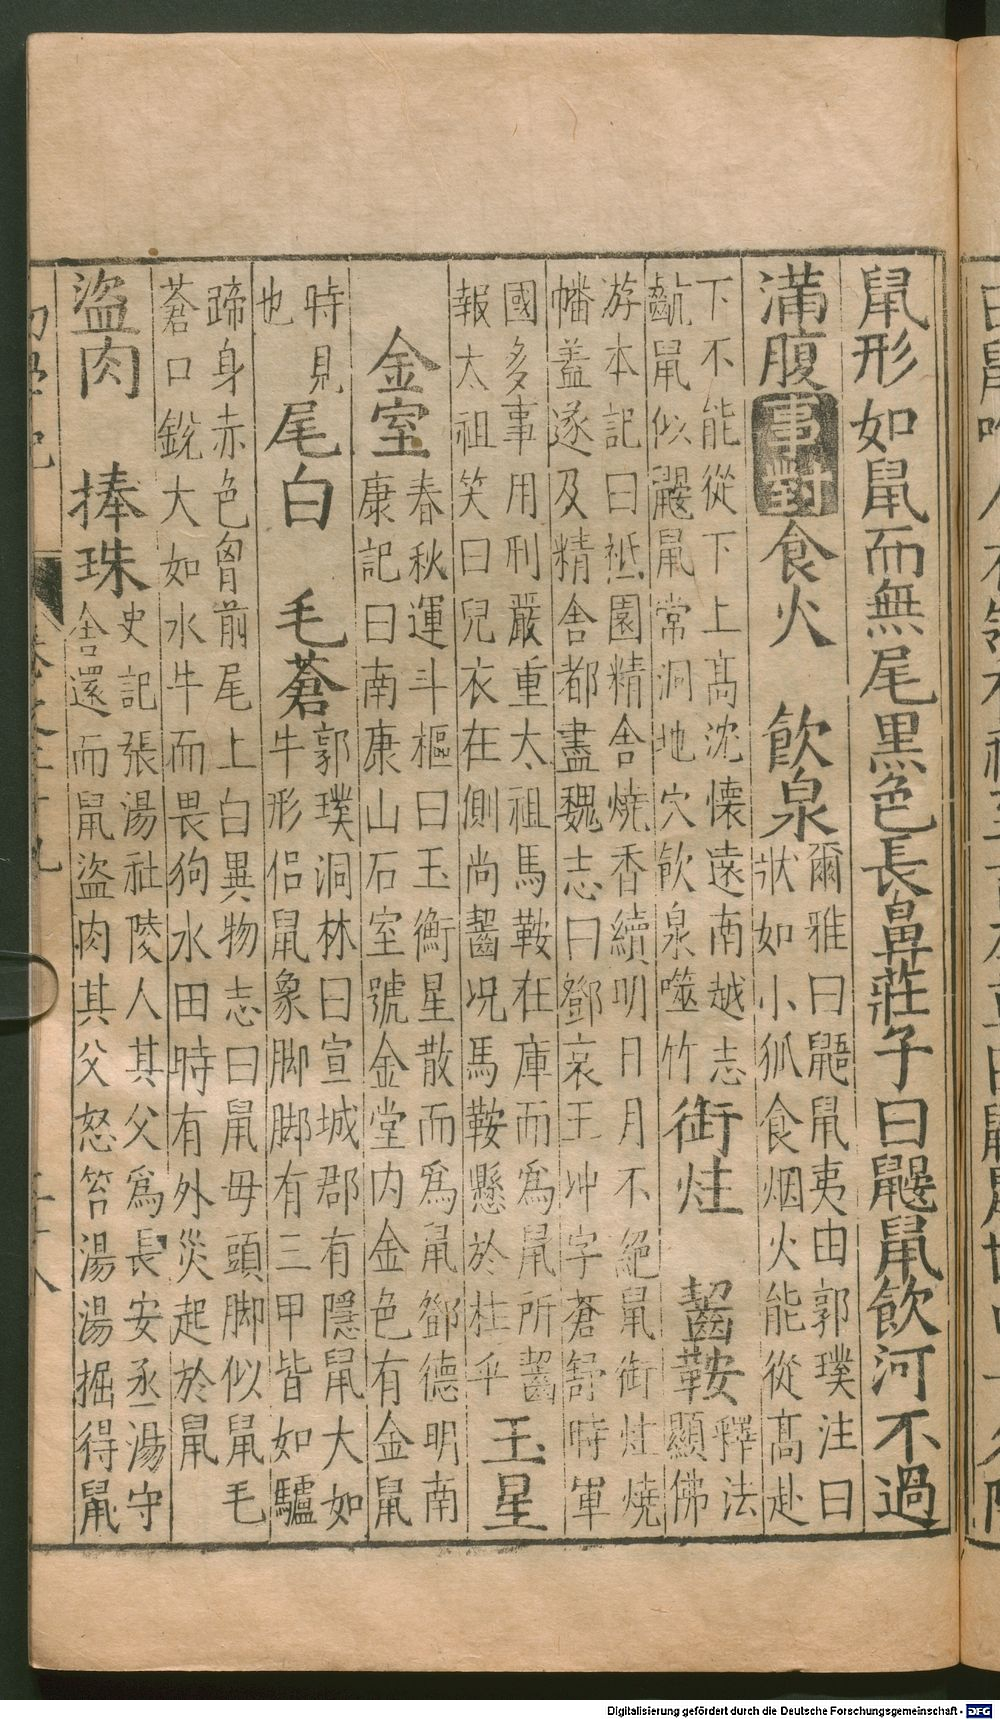 鼠形如鼠而無尾黑色長鼻莊子曰鼴鼠飲河不過
滿腹 事對 食火 飲泉 爾雅曰鼯鼠夷由郭璞注曰
狀如小狐食烟火能從髙赴
下不能從下上髙沈懷遠南越志
鼠似鼴鼠常洞地穴飲泉噬竹 銜炷 齧鞍 釋法
顯佛
游本記曰祗園精舍燒香續明日月不絕鼠銜炷燒
幡蓋遂及精舍都盡魏志曰鄧哀王冲字蒼舒時軍
國多事用刑嚴重太祖馬鞍在庫而為鼠所齧
報太祖笑曰兒衣在側尚齧况馬鞍懸於柱乎 玉星
金室 春秋運斗樞曰玉衡星散而為鼠鄧德明南
康記曰南康山石室號金堂内金色有金鼠
時見
也 尾白 毛蒼 郭璞洞林曰宣城郡有隱鼠大如
牛形侣鼠象脚脚有三甲皆如驢
蹄身赤色胷前尾上白異物志曰鼠毋頭脚似鼠毛
蒼口銳大如水牛而畏狗水田時有外災起於鼠
盜肉 捧珠 史記張湯社陵人其父為長安丞湯守
舍還而鼠盜肉其父怒笞湯湯掘得鼠
Digitalisierung gefördert durch die Deutsche Forschungsgemeinschaft - DFG